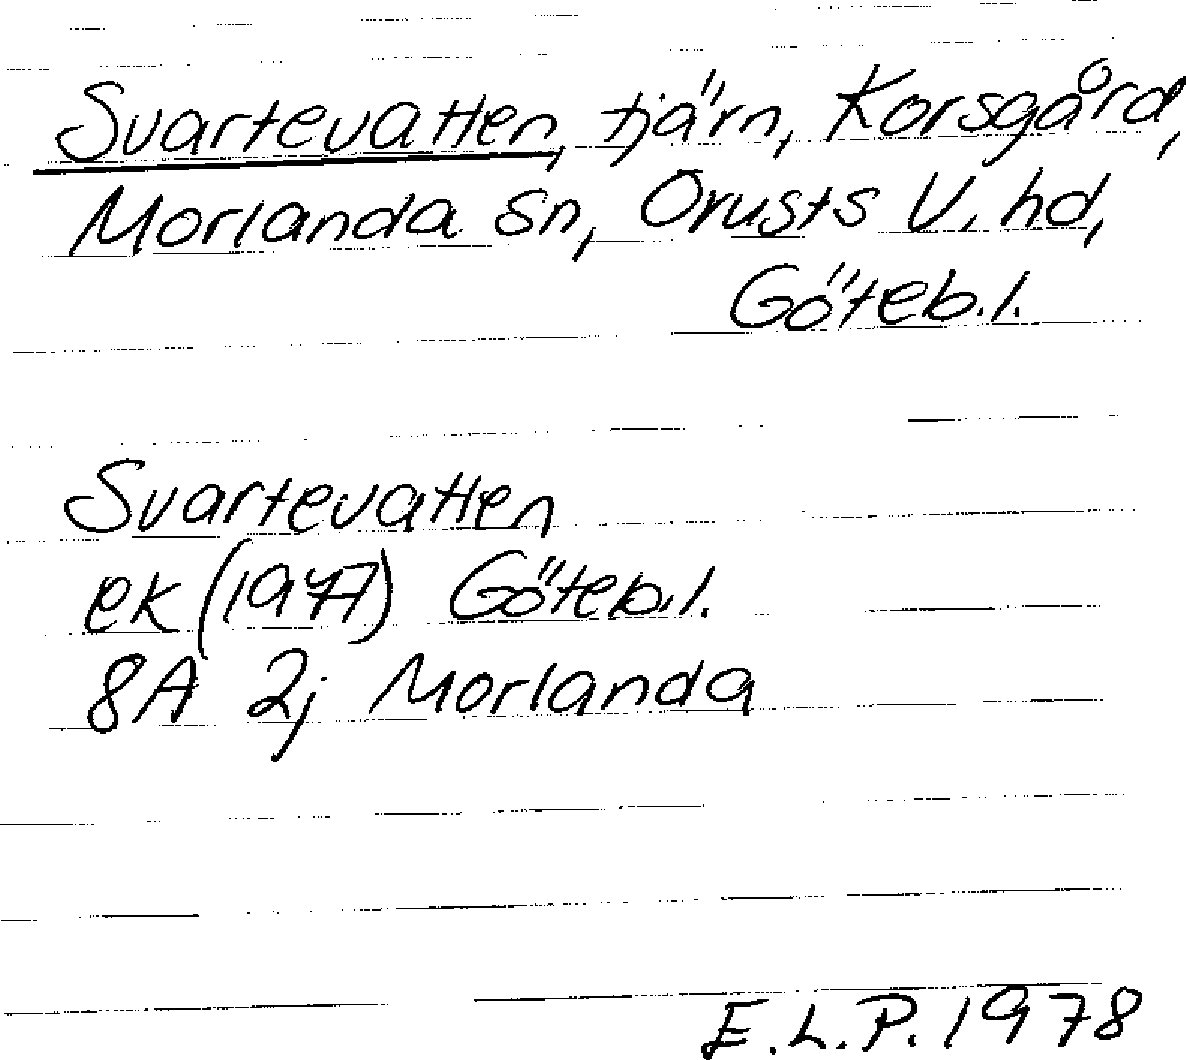 Svartevatten, tjärn, Korsgård,
Morlanda sn, Orusts V. hd,
Göteb.l.
Svartevatten
ek (1977) Göteb.l.
8A 2j Morlanda
E.L.P. 1978